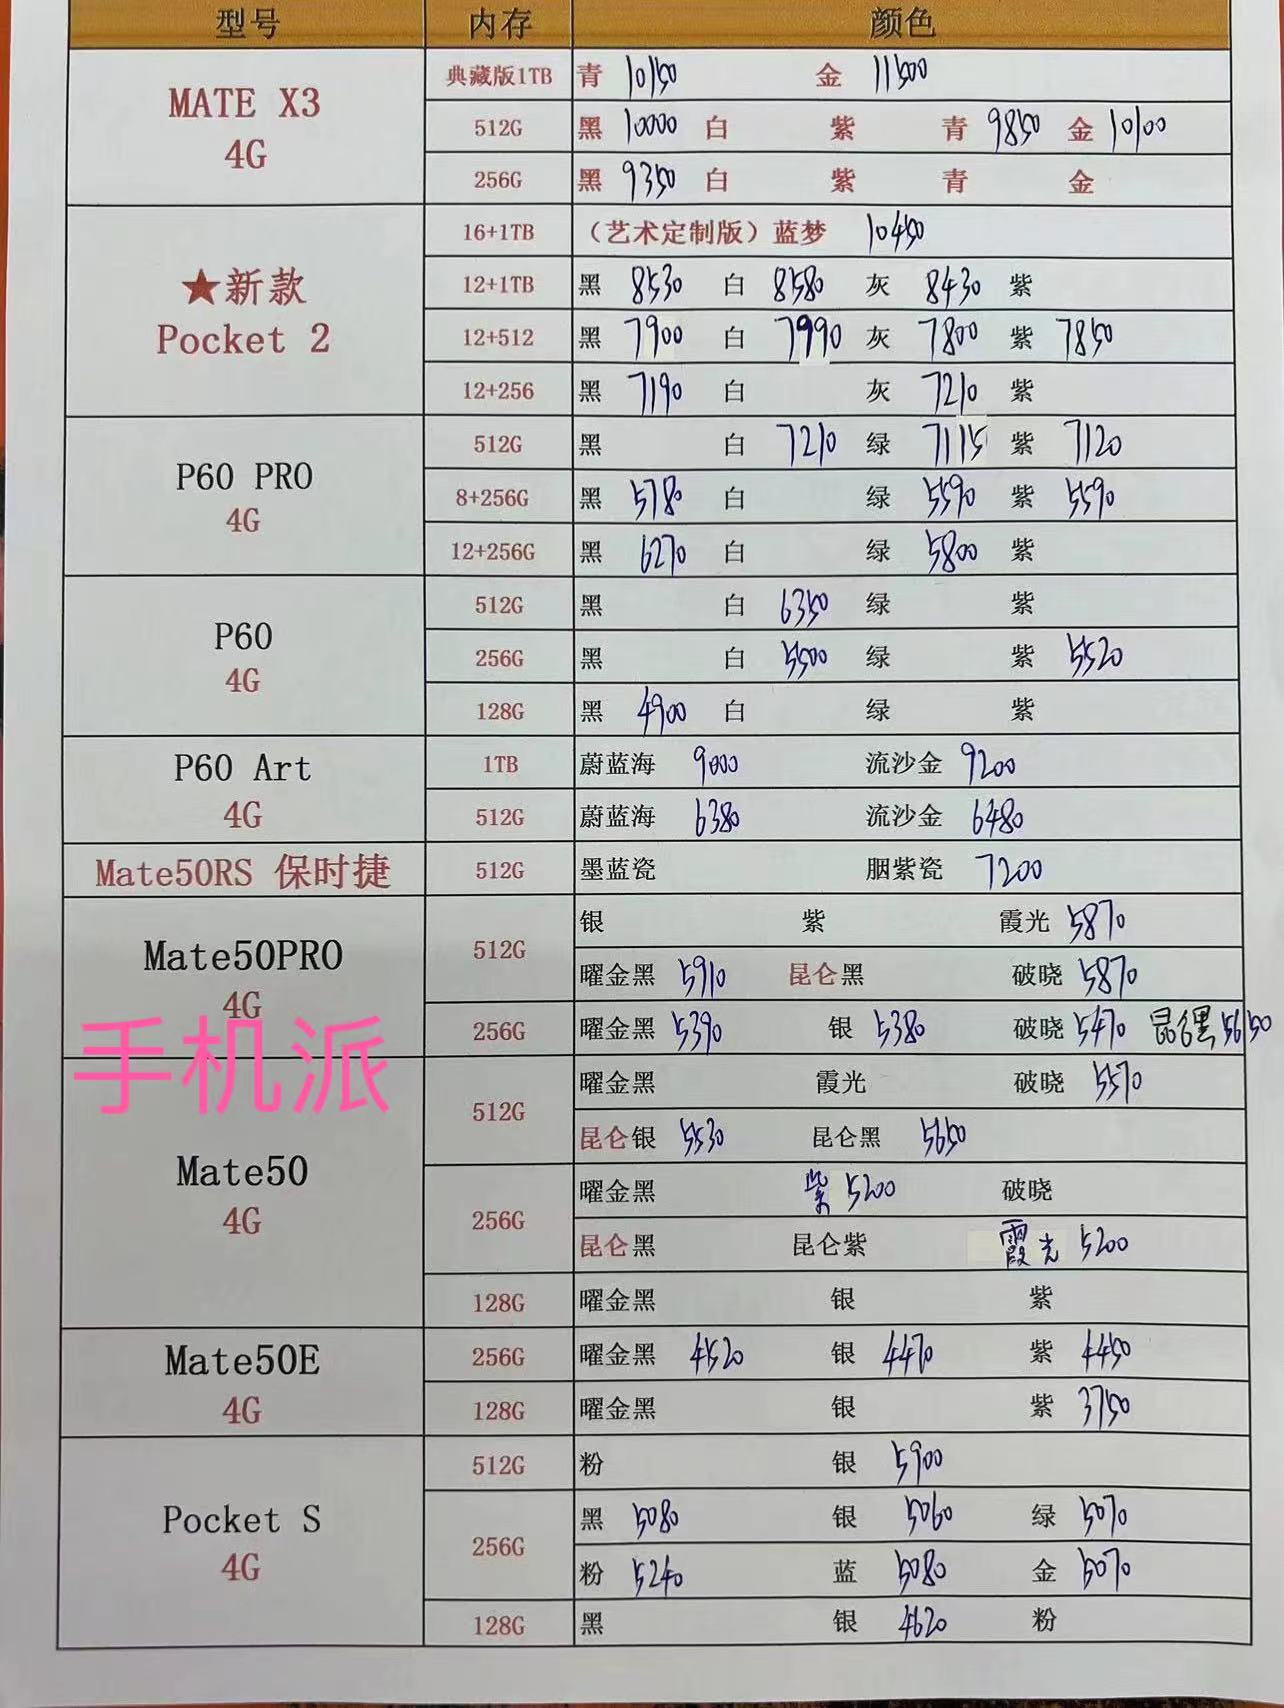 型号 内存 颜色
MATE X3 4G
典藏版1TB 青 10150 金 11500
512G 黑 10000 白 紫 青 9850 金 10100
256G 黑 9350 白 紫 青 金
★新款 Pocket 2
16+1TB （艺术定制版）蓝梦 10450
12+1TB 黑 8530 白 8580 灰 8430 紫
12+512 黑 7900 白 7990 灰 7800 紫 7850
12+256 黑 7190 白 灰 7210 紫
P60 PRO 4G
512G 黑 白 7210 绿 7115 紫 7120
8+256G 黑 5780 白 绿 5590 紫 5590
12+256G 黑 6270 白 绿 5800 紫
P60 4G
512G 黑 白 6350 绿 紫
256G 黑 白 5500 绿 紫 5520
128G 黑 4900 白 绿 紫
P60 Art 4G
1TB 蔚蓝海 9000 流沙金 9200
512G 蔚蓝海 6380 流沙金 6480
Mate50RS 保时捷 512G 墨蓝瓷 胭紫瓷 7200
Mate50PRO 4G
512G 银 紫 霞光 5870
曜金黑 5910 昆仑黑 破晓 5870
256G 曜金黑 5390 银 5380 破晓 5470 昆仑黑 5650
手机派
Mate50 4G
512G 曜金黑 霞光 破晓 5570
昆仑银 5530 昆仑黑 5650
256G 曜金黑 紫 5200 破晓
昆仑黑 昆仑紫 霞光 5200
128G 曜金黑 银 紫
Mate50E 4G
256G 曜金黑 4520 银 4470 紫 4450
128G 曜金黑 银 紫 3750
Pocket S 4G
512G 粉 银 5900
256G 黑 5080 银 5060 绿 5070
粉 5240 蓝 5080 金 5070
128G 黑 银 4620 粉